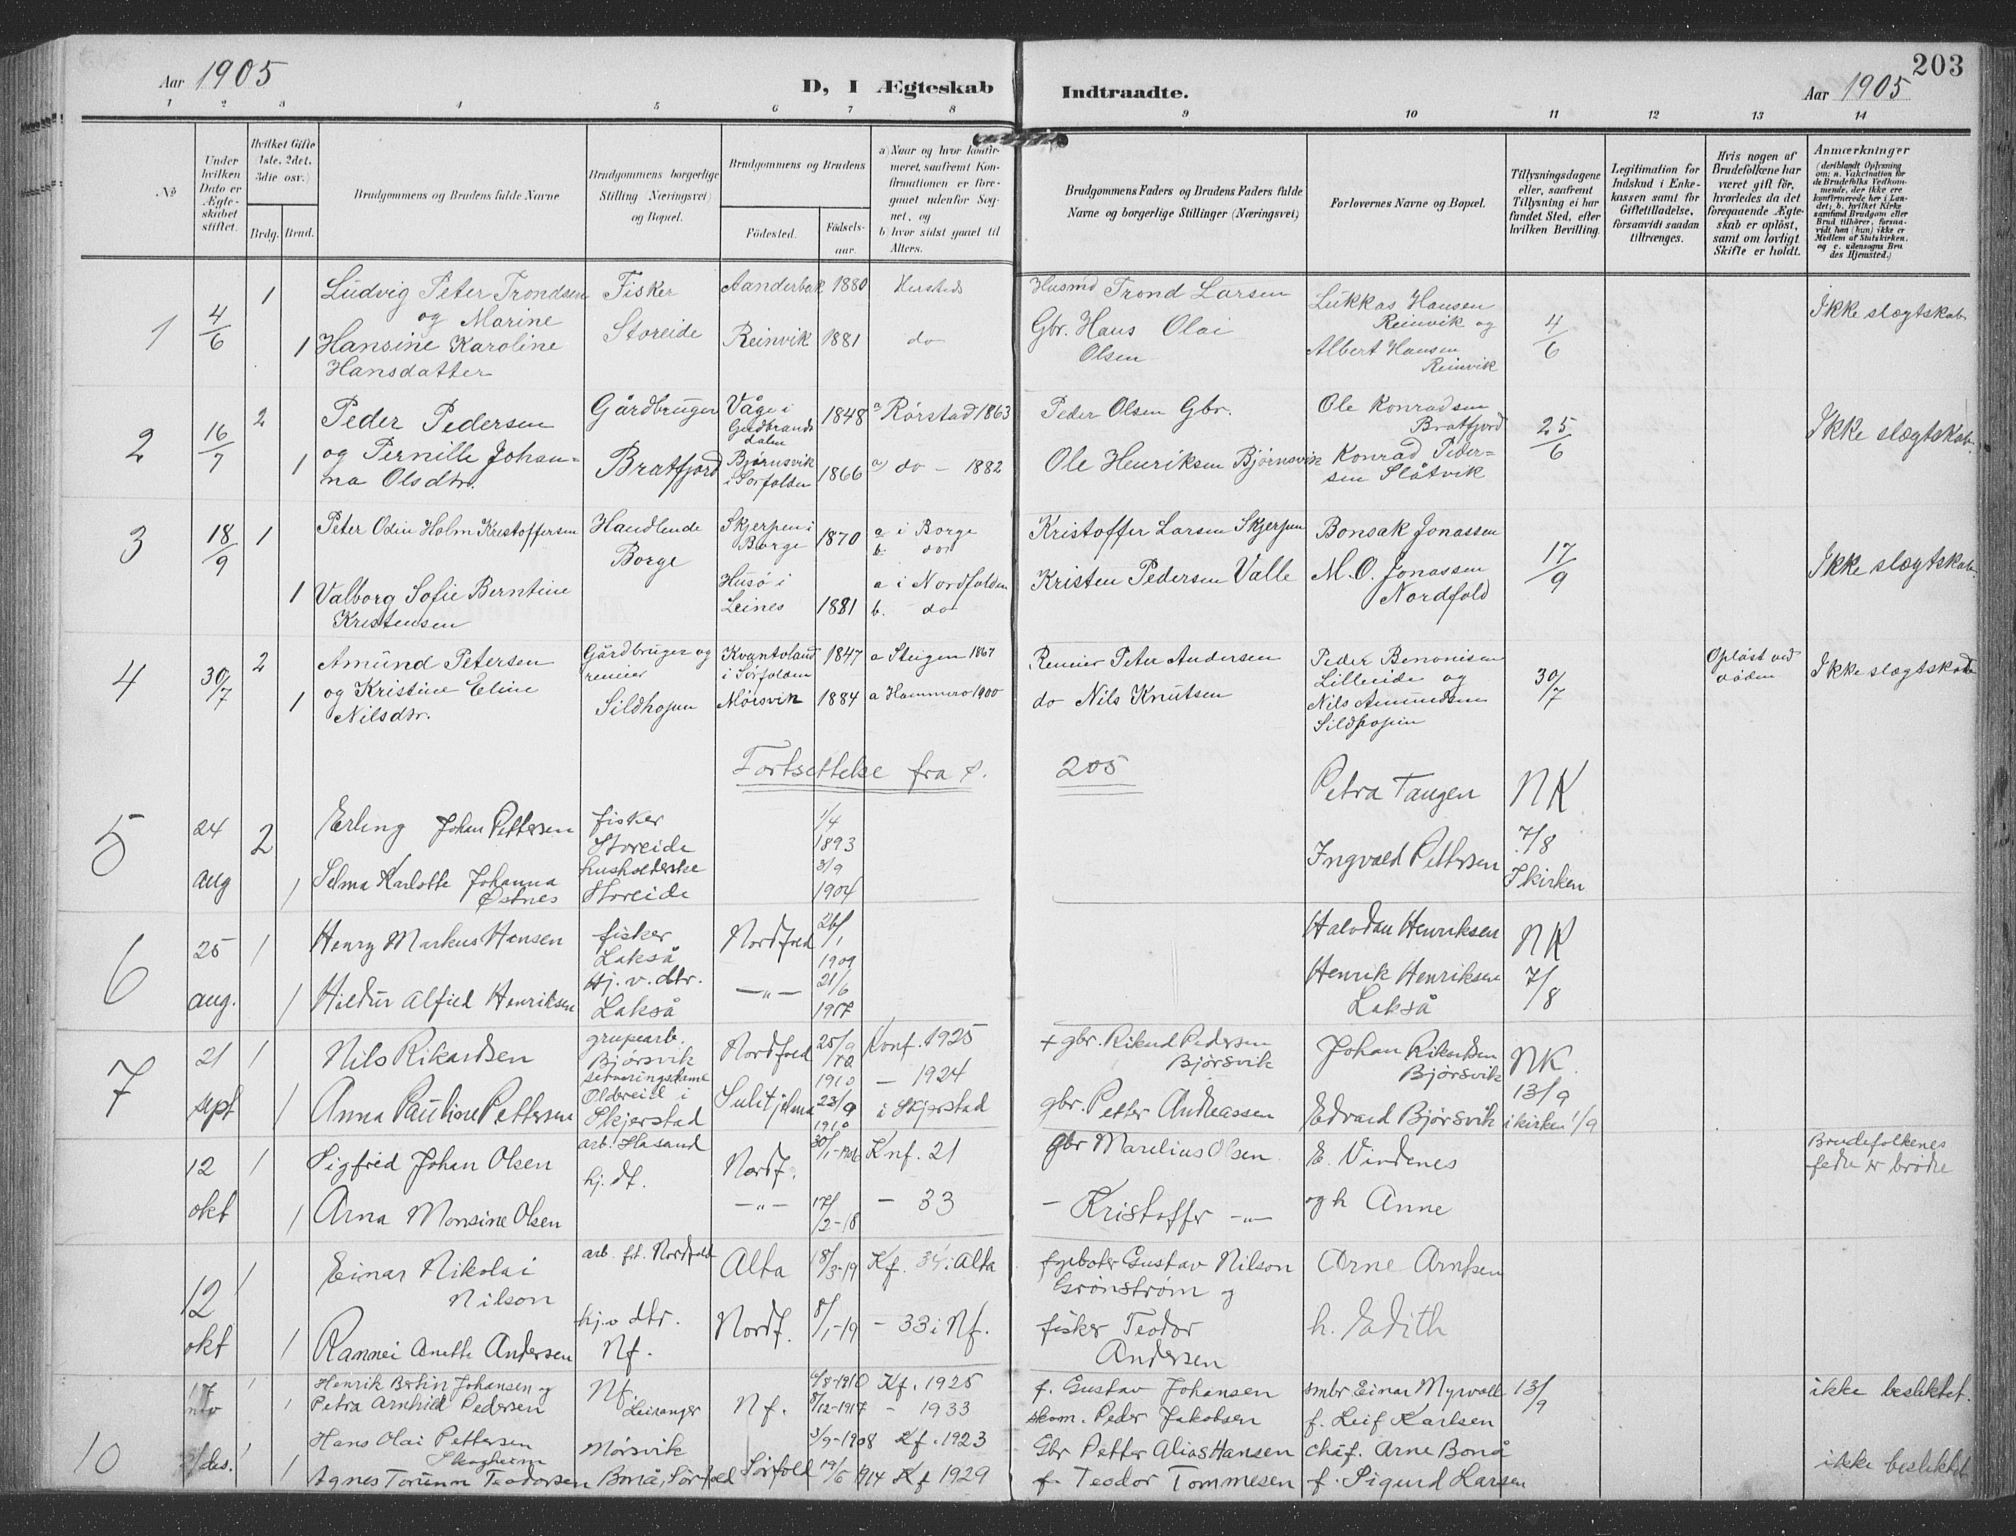 203
Aar 1905
D, I Ægteskab Indtraadte.
Aar 1905
1 2 3 4 5 6 7 8 9 10 11 12 13 14
No
Under hvilken Dato er Ægteskabet stiftet.
Hvilket Gifte (1ste, 2det, 3die osv.)
Brdg. Brud.
Brudgommens og Brudens fulde Navne
Brudgommens borgerlige Stilling (Næringsvei) og Bopæl.
Brudgommens og Brudens
Fødested.
Fødselsaar.
a) Naar og hvor konfirmeret, saafremt Konfirmationen er foregaaet udenfor Sognet, og
b hvor sidst gaaet til Alters.
Brudgommens Faders og Brudens Faders fulde Navne og borgerlige Stillinger (Næringsvei)
Forlovernes Navne og Bopæl.
Tillysningsdagene eller, saafremt Tillysning ei har fundet Sted, efter hvilken Bevilling.
Legitimation for Indskud i Enkekassen samt for Giftetilladelse, forsaavidt saadan tiltrænges.
Hvis nogen af Brudefolkene har været gift før, hvorledes da det foregaaende Ægteskab er opløst, samt om lovligt Skifte er holdt.
Anmærkninger
(deriblandt Oplysning om: a. Vakcination for de Brudefolks Vedkommende, der ikke ere konfirmerede her i Landet; b. hvilket Kirkesamfund Brudgom eller Brud tilhører, forsaavidt han (hun) ikke er Medlem af Statskirken, og c. udensogns Brudes Hjemsted.)
1 4/6 1 Ludvig Peter Trondsen Fisker 1880 Husmd Trond Larsen Lukkas Hansen Ikke slægtskab
og Marine Reinvik og
1 Hansine Karoline Storeide Reinvik 1881 do Gbr. Hans Olai Albert Hansen 4/6
Hansdatter Olsen Reinvik
2 16/7 2 Peder Pedersen Gårdbruger Våge i Gudbrandsdalen 1848 a Rørstad 1863 Peder Olsen Gbr. Ole Konradsen Bratfjord 25/6 Ikke slægtskab
1 og Pernille Johanna Olsdtr. Bratfjord Bjørnsvik i Sørfolden 1866 a) do - 1882 Ole Henriksen Bjørnsvik Konrad Pedersen Slåtvik
3 18/9 1 Peter Odin Holm Kristoffersen Handlende Borge Skjerpen i Borge 1870 a i Borge b. do Kristoffer Larsen Skjerpen Bonsak Jonassen 17/9 Ikke slægtskab
1 Valborg Sofie Berntine Kristensen Husö i Leines 1881 a i Nordfolden b. do Kristen Pedersen Valle M. O. Jonassen Nordfold
4 30/7 2 Amund Petersen Gårdbruger og reneier Kvantoland i Sørfolden 1847 a Steigen 1867 Reneier Peter Andersen Peder Benonisen Lilleeide og 30/7 Opløst ved döden Ikke slægtskab
1 og Kristine Eline Nilsdtr. Sildhopen Mörsvik 1884 a Hammerö 1900 do Nils Knutsen Nils Amundsen Sildhopen
Fortsettelse fra s. 205
5 24 aug 2 Erling Johan Pettersen fisker Storeide 1/4 1893 Petra Tangen NK
1 Selma Karlotte Johanna Østnes husholderske Storeide 3/9 1904 Ingvald Pettersen 7/8 I kirken
6 25 aug. 1 Henry Markus Hansen fisker Lakså Nordfold 26/1 1909 Halvdan Henriksen NK
1 Hildur Alfied Henriksen Hj. v. dtr. Lakså -"- 21/6 1907 Henrik Henriksen Lakså 7/8
7 21 sept 1 Nils Rikardsen grupearb. Bjørsvik Nordfold 25/9 1910 Konf. 1925 + gbr. Rikard Pedersen Bjørsvik Johan Rikardsen Bjørsvik NK
1 Anna Pauline Pettersen serveringsdame Oldereid i Skjerstad Sulitjelma 23/9 1910 - 1924 i Skjerstad gbr. Petter Andreassen Edvard Bjørsvik 13/9 i kirken 1/9
12 okt 1 Sigfred Johan Olsen arb. Hasand Nordf. Knf. 21 gbr Marelius Olsen E. Vindenes Brudefolkenes fedre er brødre
1 Arna Monsine Olsen hj. dt. -"- 17/2-18 - 33 - Kristoffer -"- og h Anne
12 okt 1 Einar Nikolai Nilson arb. fh. Nordfold Alta 18/3-19 Kf. 34 i Alta Gustav Nilson Grønstrøm og Arne Arntsen
1 Rannei Anette Andersen hj.v dtr. Nf. Nordf. 8/1-19 - 33 i Nf. fisker Teodor Andersen h. Edith
17 nov 1 Henrik Bertin Johansen og Nf. Kf. 1925 f. Gustav Johansen smbr Einar Myrvall 13/9 ikke besliktet.
1 Petra Arnhild Pedersen Leiranger Nf. 8/12-1917 - 1933 skom. Peder Jakobsen f. Leif Karlsen
10 des. Hans Olai Pettersen Skogheim Mørsvik 3/9-1908 Kf. 1923 Gbr Petter Alias Hansen chåf. Arne Bonå ikke besliktet
1 Agnes Torunn Teodorsen Bonå, Sørfold Sørfold 19/6 1914 Kf 1929 f. Teodor Tommesen f. Sigurd Hansen